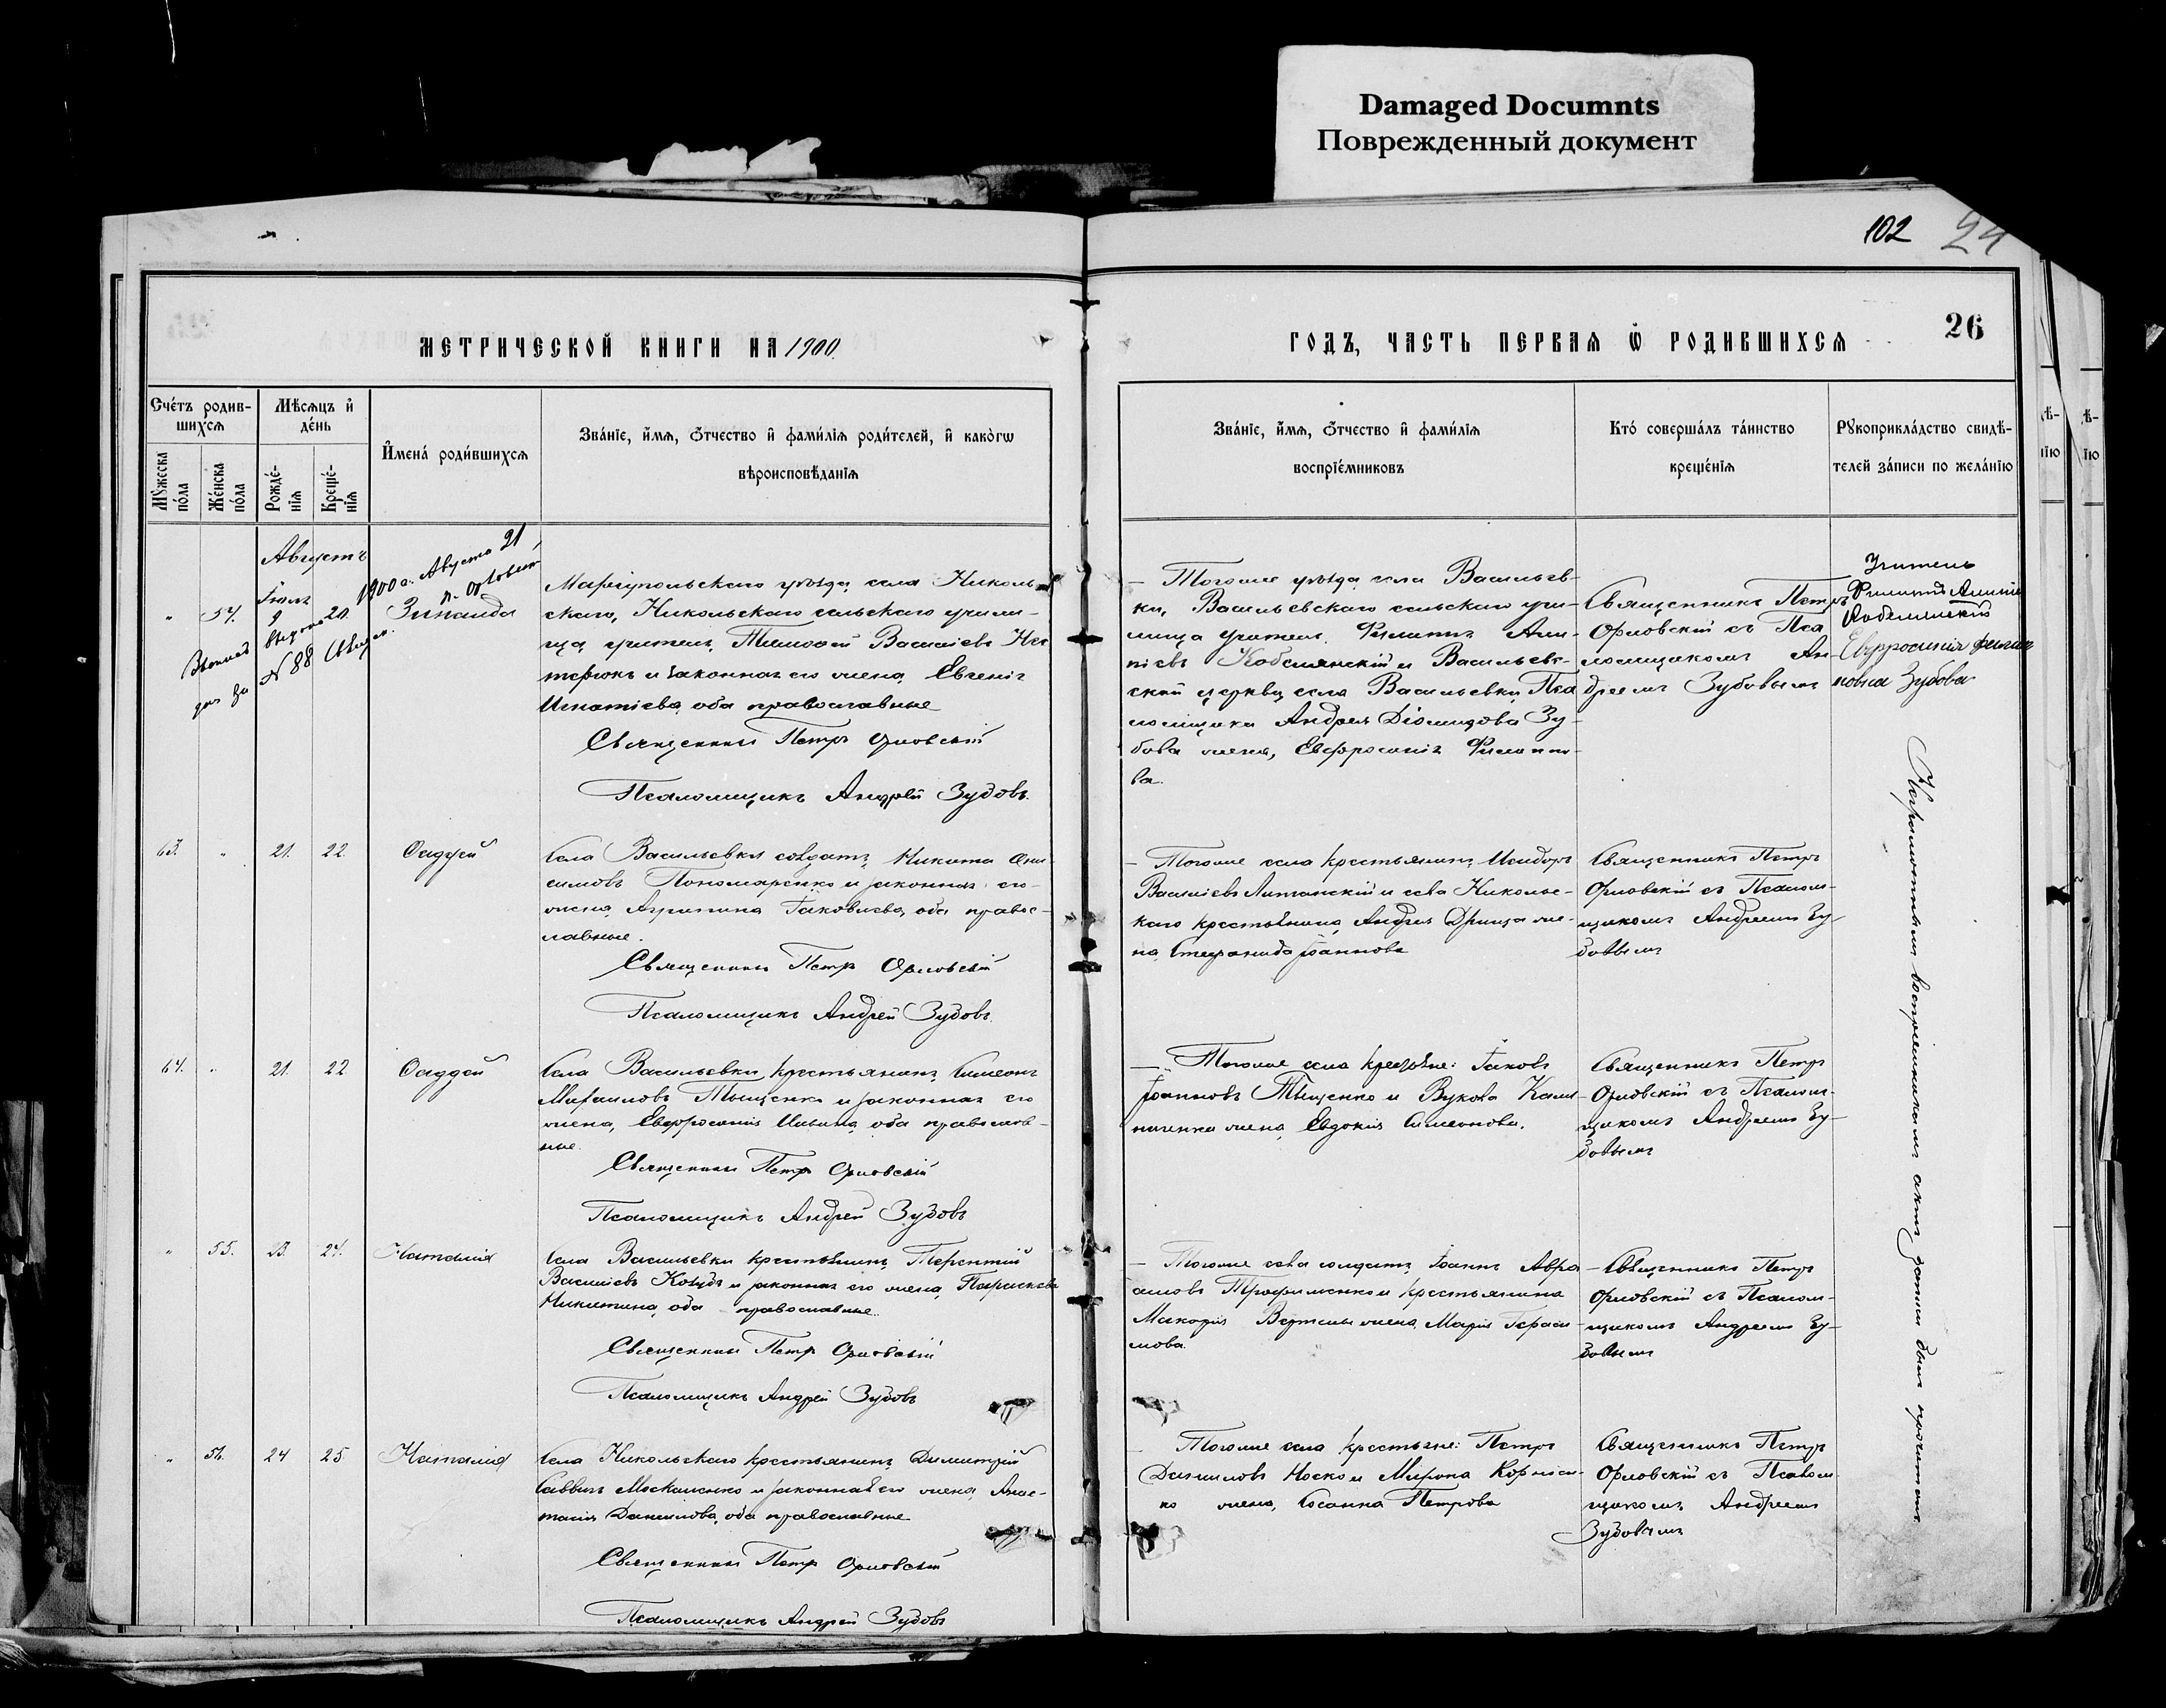 Damaged Documnts
Поврежденный документ
102 24
МЕТРИЧЕСКОЙ КНИГИ НА 1900.
ГОДЪ, ЧАСТЬ ПЕРВАЯ Ѿ РОДИВШИХСЯ
26
Счетъ родив-
шихся
Мѣсяцъ и
день
Мужеска
пола
Женска
пола
Рожде-
нія
Креще-
нія
Имена родившихся
Званіе, имя, отчество и фамилія родителей, и какогѡ
вѣроисповѣданія
Званіе, имя, отчество и фамилія
воспріемниковъ
Кто совершалъ таинство
крещенія
Рукоприкладство свидѣ-
телей записи по желанію
Августъ
1900 г. Августа 21
54. 9 20. Зинаида
№ 88
Маріупольскаго уѣзда, села Николь-
скаго, Никольскаго сельскаго учили-
ща, учитель, Тимофей Василіевъ Не
и законная его жена, Евгенія
Игнатіева, оба православные
Священникъ Петръ Орловскій
Псаломщикъ Андрей Зубовъ.
— Тогоже уѣзда, села Васильев-
ки, Васильевскаго сельскаго учи-
лища учитель, Филиппъ
и Васильев-
ской церкви, села Васильевки, Пса
ломщика Андрея Діомидова Зу-
бова жена, Евфросинія Филиппо-
ва.
Священникъ Петръ
Орловскій съ Пса
ломщикомъ Ан-
дреемъ Зубовымъ
Учитель
Филиппъ
Евфросинія Филип
пова Зубова
63. " 21. 22. Фаддей
Села Васильевки солдатъ, Никита Ани-
симовъ Пономаренко и законная его
жена, Агрипина Іаковлева, оба правос-
лавные.
Священникъ Петръ Орловскій
Псаломщикъ Андрей Зубовъ.
— Тогоже села крестьянинъ, Исидоръ
Василіевъ и села Никольс-
каго крестьянина, Андрея Дрища же-
на, Стефанида Іоаннова
Священникъ Петръ
Орловскій съ Псалом-
щикомъ Андреемъ Зу-
бовымъ
64. " 21. 22 Фаддей
Села Васильевки, крестьянинъ, Симеонъ
Михаиловъ Тыщенко и законная его
жена, Евфросинія Ильина, оба православ-
ные.
Священникъ Петръ Орловскій
Псаломщикъ Андрей Зубовъ
— Тогоже села крестьяне: Іаковъ
Іоанновъ Тыщенко и Вукола Кали
ниченка жена, Евдокія Симеонова.
Священникъ Петръ
Орловскій съ Псалом-
щикомъ Андреемъ Зу-
бовымъ
" 55. 23. 24. Наталія
Села Васильевки крестьянинъ, Терентій
Василіевъ и законная его жена, Параскева
Никитина, оба православные.
Священникъ Петръ Орловскій
Псаломщикъ Андрей Зубовъ
— Тогоже села солдатъ, Іоаннъ Авра
амовъ Трофименко и крестьянина
Макарія жена, Марія Гераси-
мова.
Священникъ Петръ
Орловскій съ Псалом-
щикомъ Андреемъ Зу-
бовымъ
" 56. 24 25. Наталія
Села Никольскаго крестьянинъ, Димитрій
Саввинъ Москаленко и законная его жена, Анас-
тасія Данилова, оба православные
Священникъ Петръ Орловскій
Псаломщикъ Андрей Зубовъ
Тогоже села крестьяне: Петръ
Даниловъ Носко и Мирона Корніен-
ко жена, Сосанна Петрова
Священникъ Петръ
Орловскій съ Псалом-
щикомъ, Андреемъ
Зубовымъ
Неграмотнымъ воспріемникамъ актъ записи былъ прочитанъ.